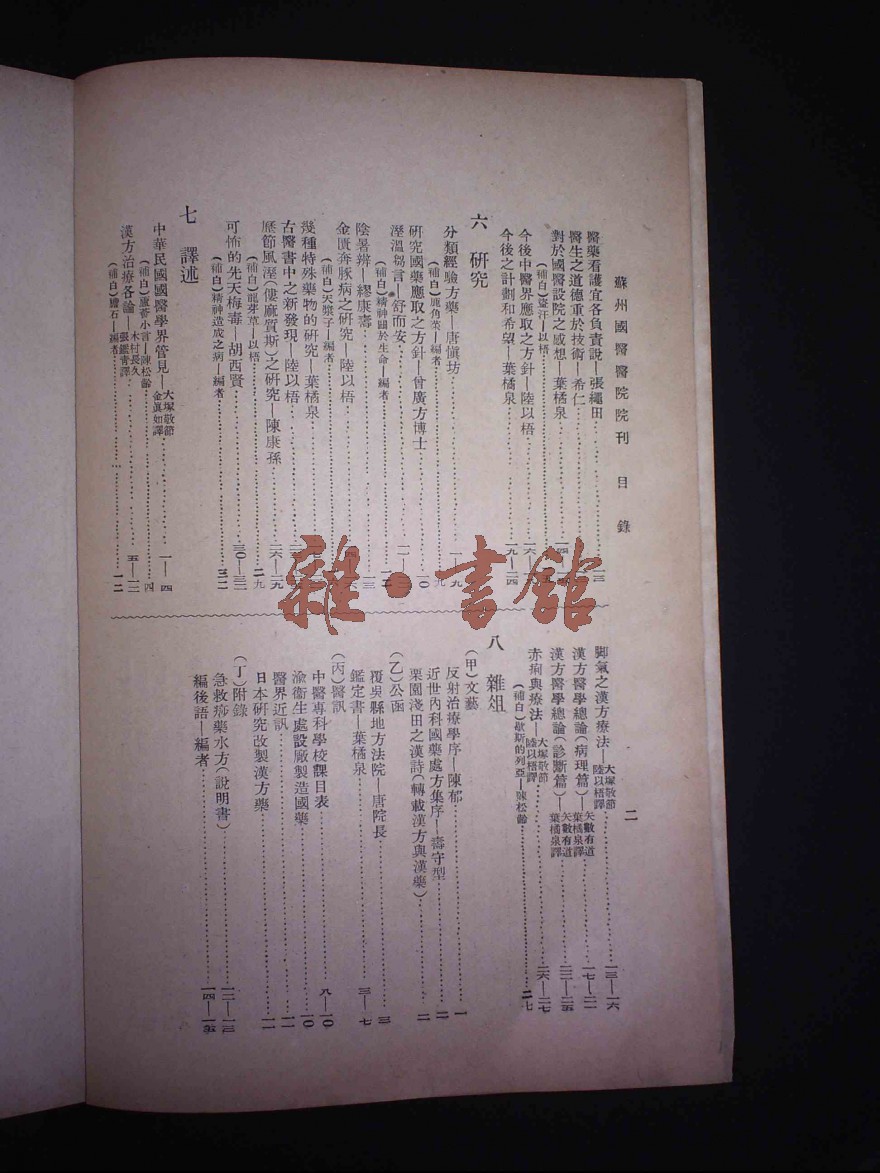 蘇州國醫醫院院刊 目錄
二
醫藥看護宜各負責説—張繩田
醫生之道德重於技術—希仁
對於國醫設院之感想—葉橘泉
(補白)盜汗—以梧
今後中醫界應取之方針—陸以梧
今後之計劃和希望—葉橘泉
六 研究
分類經驗方藥—唐愼坊
(補白)鹿角菜—編者
研究國藥應取之方針—曾廣方博士 一〇
溼溫芻言—舒而安
(補白)精神關於生命—編者
陰暑辨—繆康壽 一三
金匱奔豚病之研究—陸以梧
(補白)天漿子—編者
幾種特殊藥物的研究—葉橘泉
古醫書中之新發現—陸以梧
歷節風溼(僂麻質斯)之研究—陳康孫 二六—二九
(補白)龍芽草—以梧 二九
可怖的先天梅毒—胡西賢 三〇—三二
(補白)精神造成之病—編者 三二
七 譯述
中華民國國醫學界管見—大塚敬節 金眞如譯 一—四
(補白)蘆薈小言—陳松齡 四
漢方治療各論—木村長久 張鑑青譯 五—一二
(補白)—編者 一二
脚氣之漢方療法—大塚敬節 陸以梧譯 一三—一六
漢方醫學總論(病理篇)—矢數有道 葉橘泉譯 一七—二一
漢方醫學總論(診斷篇)—矢數有道 葉橘泉譯 二二—二五
赤痢與療法—大塚敬節 陸以梧譯 二六—二七
(補白)歇斯的列亞—陳松齡 二七
八 雜俎
(甲)文藝
反射治療學序—陳郁 一
近世內科國藥處方集序—壽守型 二
栗園淺田之漢詩(轉載漢方與漢藥) 二
(乙)公函
覆吳縣地方法院—唐院長 三
鑑定書—葉橘泉 三—七
(丙)醫訊
中醫專科學校課目表 八—一〇
渝衞生處設廠製造國藥 一〇
醫界近訊 一一
日本研究改製漢方藥 一一
(丁)附錄
急救痧藥水方(說明書) 一二—一三
編後語—編者 一四—一五
雜·書館